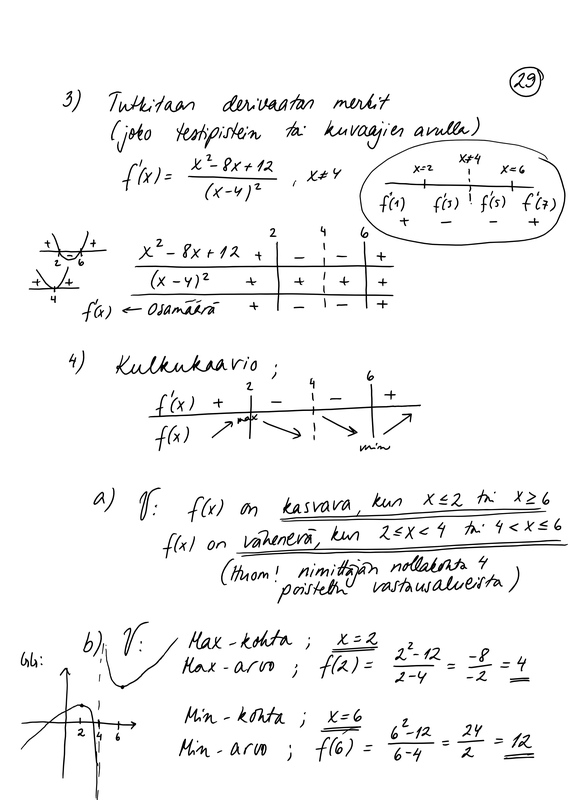 29
3) Tutkitaan derivaatan merkit
(joko testipistein tai kuvaajien avulla)
f'(x) = x² - 8x + 12 / (x-4)² , x≠4
x=2 x≠4 x=6
f'(1) f'(3) f'(5) f'(7)
+ - - +
2 4 6
+ - +
2 6
x² - 8x + 12 + - - +
+ +
4
(x-4)² + + + +
f'(x) ← osamäärä + - - +
4) Kulkukaavio ;
2 4 6
f'(x) + - - +
f(x) max min
a) V: f(x) on kasvava, kun x ≤ 2 tai x ≥ 6
f(x) on vähenevä, kun 2 ≤ x < 4 tai 4 < x ≤ 6
(Huom! nimittäjän nollakohta 4
poistettu vastausalueista)
b) V: Max-kohta ; x = 2
Max-arvo ; f(2) = 2² - 12 / 2 - 4 = -8 / -2 = 4
GG:
2 4 6
Min-kohta ; x = 6
Min-arvo ; f(6) = 6² - 12 / 6 - 4 = 24 / 2 = 12